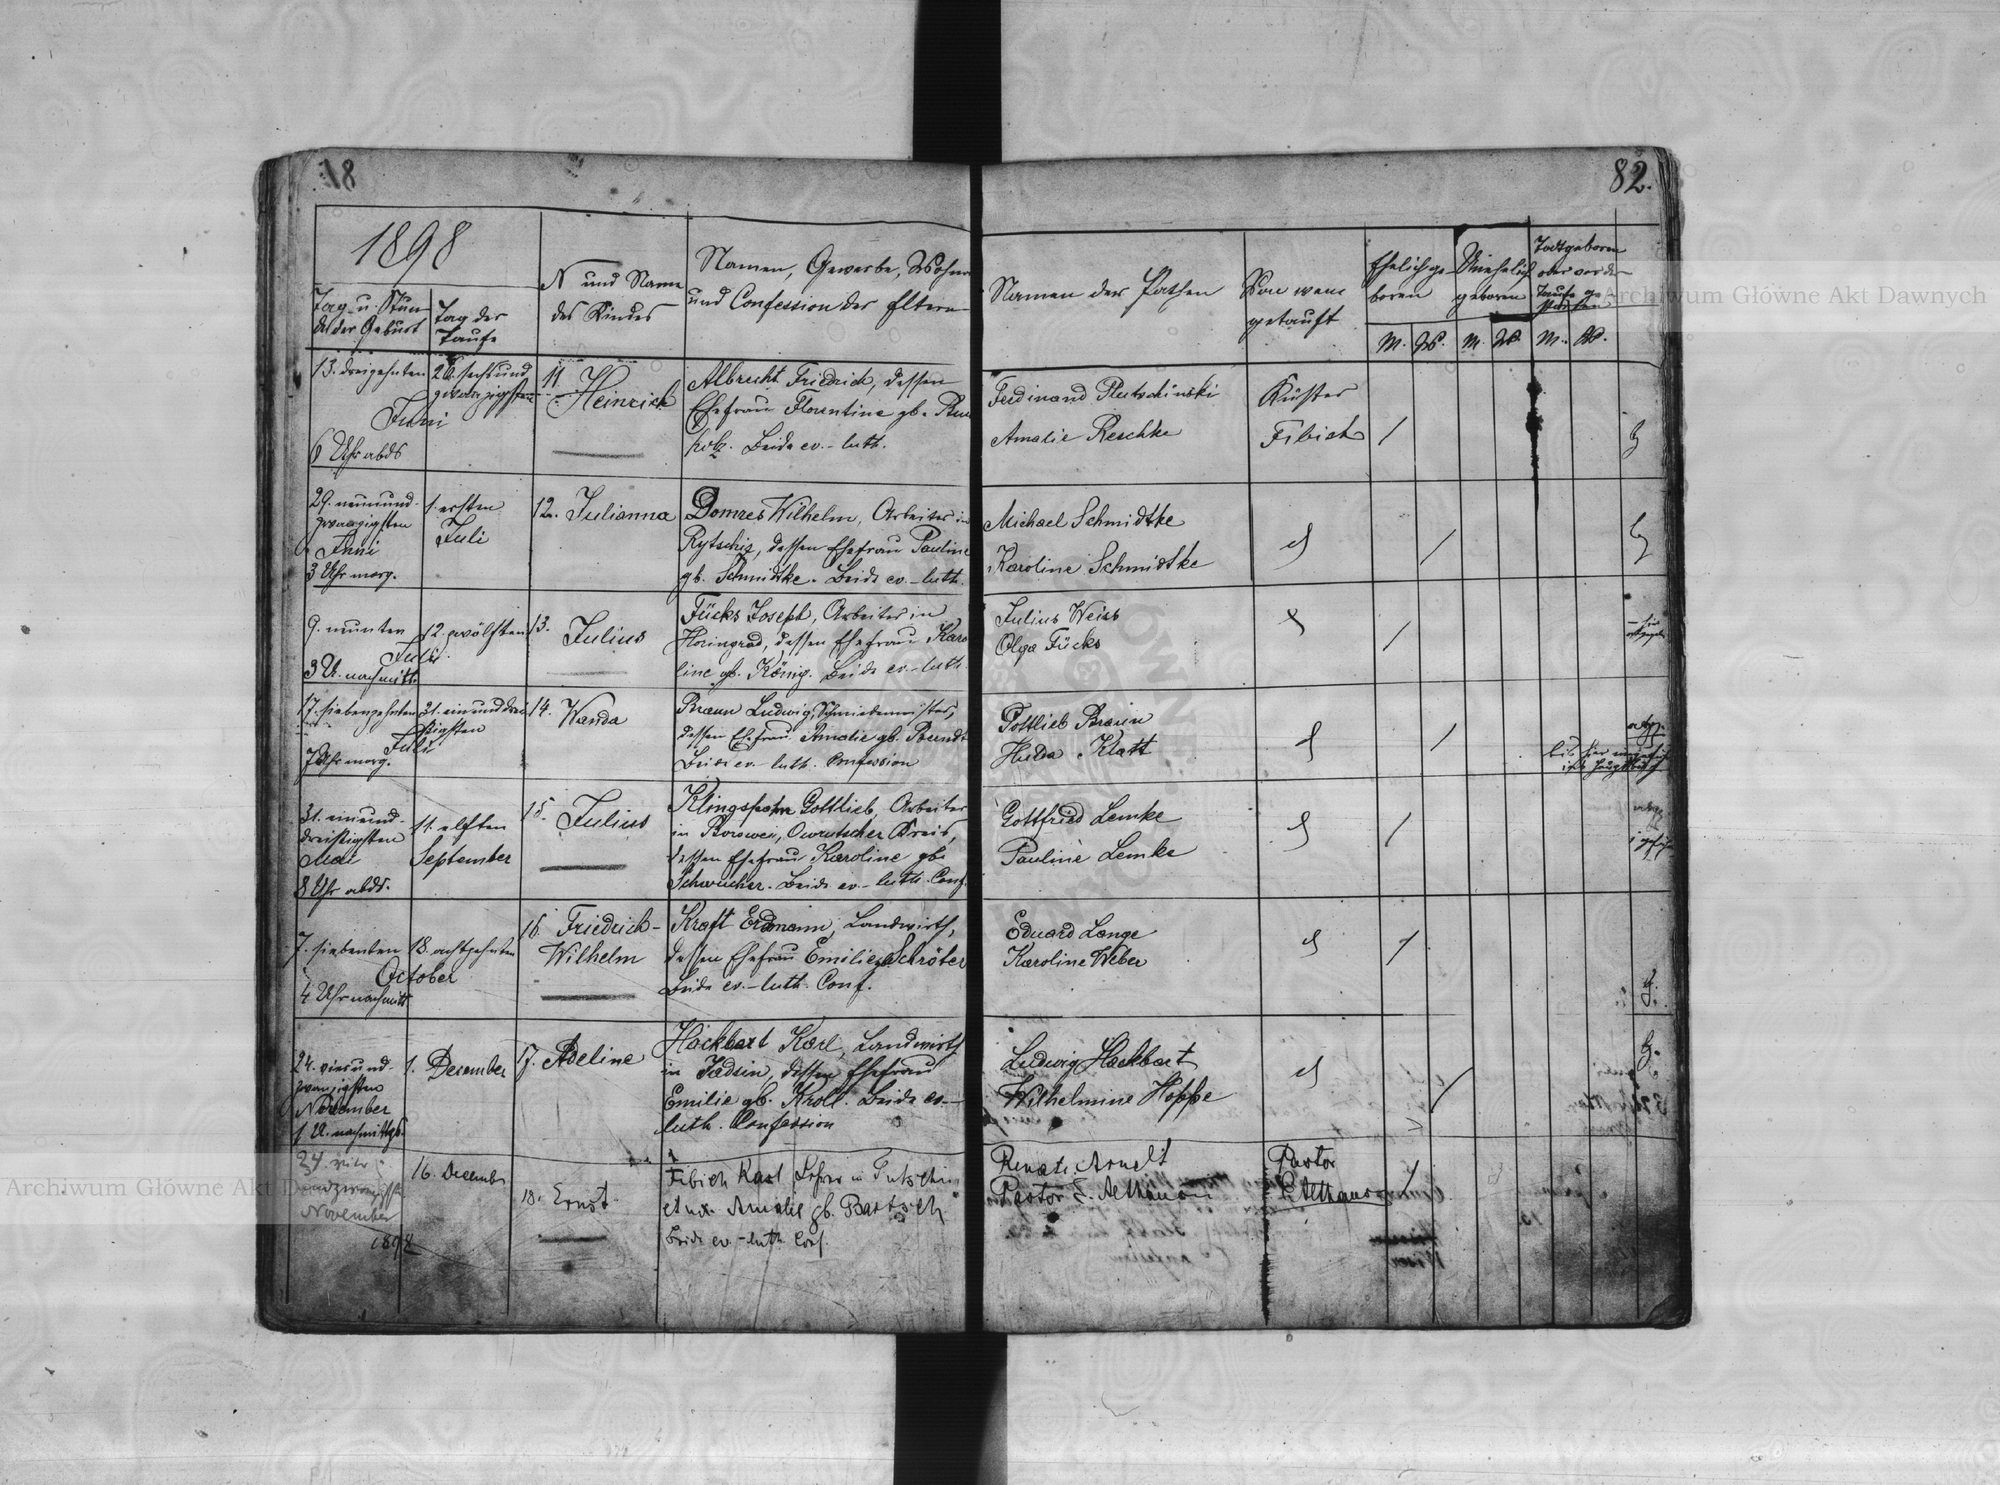 81
1898
Tag u. Stun-
de der Geburt
Tag der
Taufe
N und Name
des Kindes
Namen, Gewerbe, Wohnort
und Confession der Eltern
13. dreizehnten
Juni
6 Uhr abds
26. sechsund
zwanzigsten
11
Heinrich
Albrecht Friedrich, dessen
Ehefrau Florentine gb.
holz. Beide ev.-luth.
29. neunund-
zwanzigsten
Juni
3 Uhr morg.
1. ersten
Juli
12. Julianna
Domres Wilhelm, Arbeiter in
dessen Ehefrau Pauline
gb. Schmidtke. Beide ev.-luth.
9. neunten
Juli
3 U. nachmitt.
12. zwölften
13.
Julius
Fücks Joseph, Arbeiter in
dessen Ehefrau Karo
line gb. König. Beide ev.-luth.
17. siebenzehnten
Juli
7 Uhr morg.
31. einunddrei
ßigsten
14. Wanda
Braun Ludwig, Schmiedemeister,
dessen Ehefrau Amalie gb. Berndt
Beide ev.-luth. Confession
31. einund-
dreißigsten
Mai
8 Uhr abds.
11. elften
September
15. Julius
Klingspohn Gottlieb, Arbeiter
in Owrutscher Kreis,
dessen Ehefrau Karoline gb.
Beide ev.-luth. Conf.
7. siebenten
October
4 Uhr nachmitt
18. achtzehnten
16. Friedrich-
Wilhelm
Kraft Erdmann, Landwirth,
dessen Ehefrau Emilie gb. Schröter
Beide ev.-luth. Conf.
24. vierund-
zwanzigsten
November
1 U. nachmittgs.
1. December
17. Adeline
Hackbart Karl, Landwirth
in dessen Ehefrau
Emilie gb. Kroll. Beide ev.-
luth. Confession
24. vier
undzwanzigsten
November
1898
16. December
18. Ernst
Fibich Karl Lehrer in
et ux. Amalie gb. Bartsch
Beide ev.-luth. Conf.
82.
Namen der Pathen
Von wem
getauft
Ehelich ge-
boren
Unehelich
geboren
Todtgeboren
oder vor der
Taufe ge-
storben
M. W. M. W. M. W.
Ferdinand Plutschinski
Amalie Reschke
Küster
Fibich
Michael Schmidtke
Karoline Schmidtke
Julius Weiss
Olga Fücks
Gottlieb Braun
Hulda Klatt
Gottfried Lemke
Pauline Lemke
Eduard Lange
Karoline Weber
Ludwig Hackbart
Wilhelmine Hoppe
Renate Arndt
Pastor E. Althausen
Pastor
E. Althausen
Archiwum Główne Akt Dawnych
Archiwum Główne Akt Dawnych